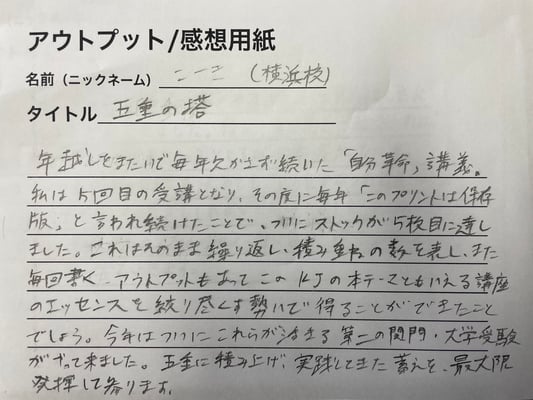 アウトプット/感想用紙
名前（ニックネーム） こーき （横浜校）
タイトル 五重の塔
年越しをまたいで毎年欠かさず続いた「自分革命」講義。
私は5回目の受講となり、その度に毎年「このプリントは保存
版」と言われ続けたことで、ついにストックが5枚目に達し
ました。これはそのまま繰り返し、積み重ねの数を表し、また
毎回書く、アウトプットもあってこのKJの本テーマともいえる講座
のエッセンスを絞り尽くす勢いで得ることができたこと
でしょう。今年はついにこれらが活きる第二の関門・大学受験
がやって来ました。五重に積み上げ、実践してきた蓄えを、最大限
発揮して参ります。